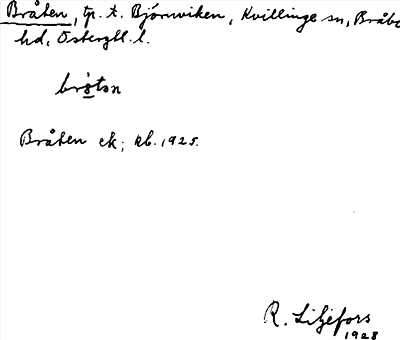 Bråten, tp. t. Björnviken, Kvillinge sn, Bråbo
hd, Östergtl. l.
brɔ̀tən
Bråten ek; kb. 1925.
R. Liljefors
1928